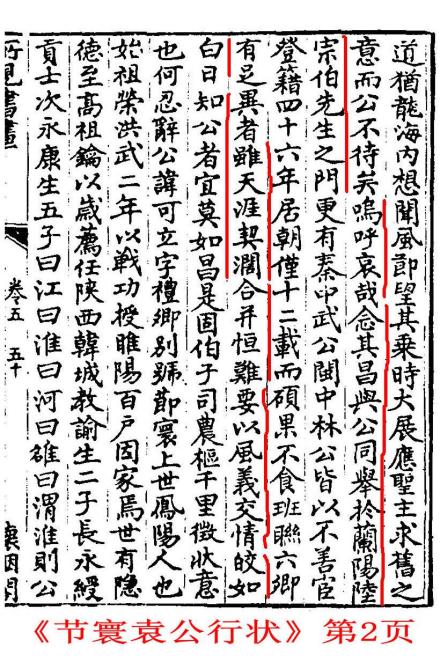 道猶龍海内想聞風節望其乗時大展應聖主求舊之
意而公不待矣嗚呼哀哉念其昌與公同舉扵蘭陽陸
宗伯先生之門更有秦中武公閩中林公皆以不善宦
登籍四十六年居朝僅十二載而碩果不食班聯六卿
有足異者雖天涯契濶合并恒難要以風義交情皎如
白日知公者宜莫如昌是固伯子司農樞千里徴狀意
也何忍辭公諱可立字禮卿别號節寰上世鳳陽人也
始祖榮洪武二年以戰功授睢陽百戶因家焉世有隐
德至高祖鑰以歲薦任陜西韓城教諭生二子長永綬
貢士次永康生五子曰江曰淮曰河曰雒曰渭淮則公
所見書畫
卷五
五十
《节寰袁公行状》第2页